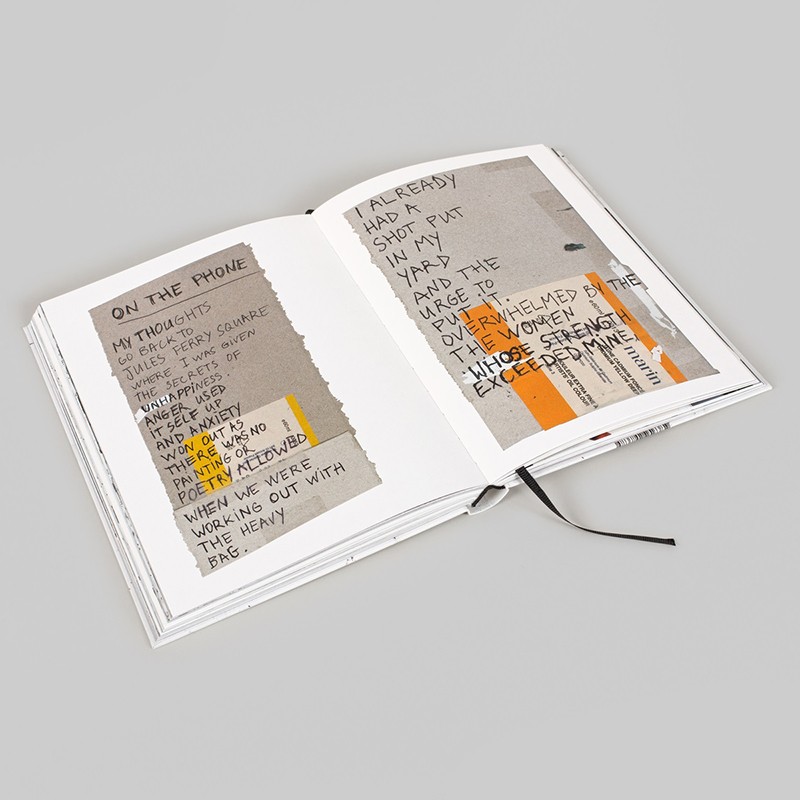 ON THE PHONE
MY THOUGHTS
GO BACK TO
JULES FERRY SQUARE
WHERE I WAS GIVEN
THE SECRETS OF
UNHAPPINESS.
ANGER USED
IT SELF UP
AND ANXIETY
WON OUT AS
THERE WAS NO
PAINTING OR
POETRY ALLOWED
WHEN WE WERE
WORKING OUT WITH
THE HEAVY
BAG.
I ALREADY
HAD A
SHOT PUT
IN MY
YARD
AND THE
URGE TO
OVERWHELMED BY THE
THE WOMEN
WHOSE STRENGTH
EXCEEDED MINE.
marin
COULEUR EXTRA FINE